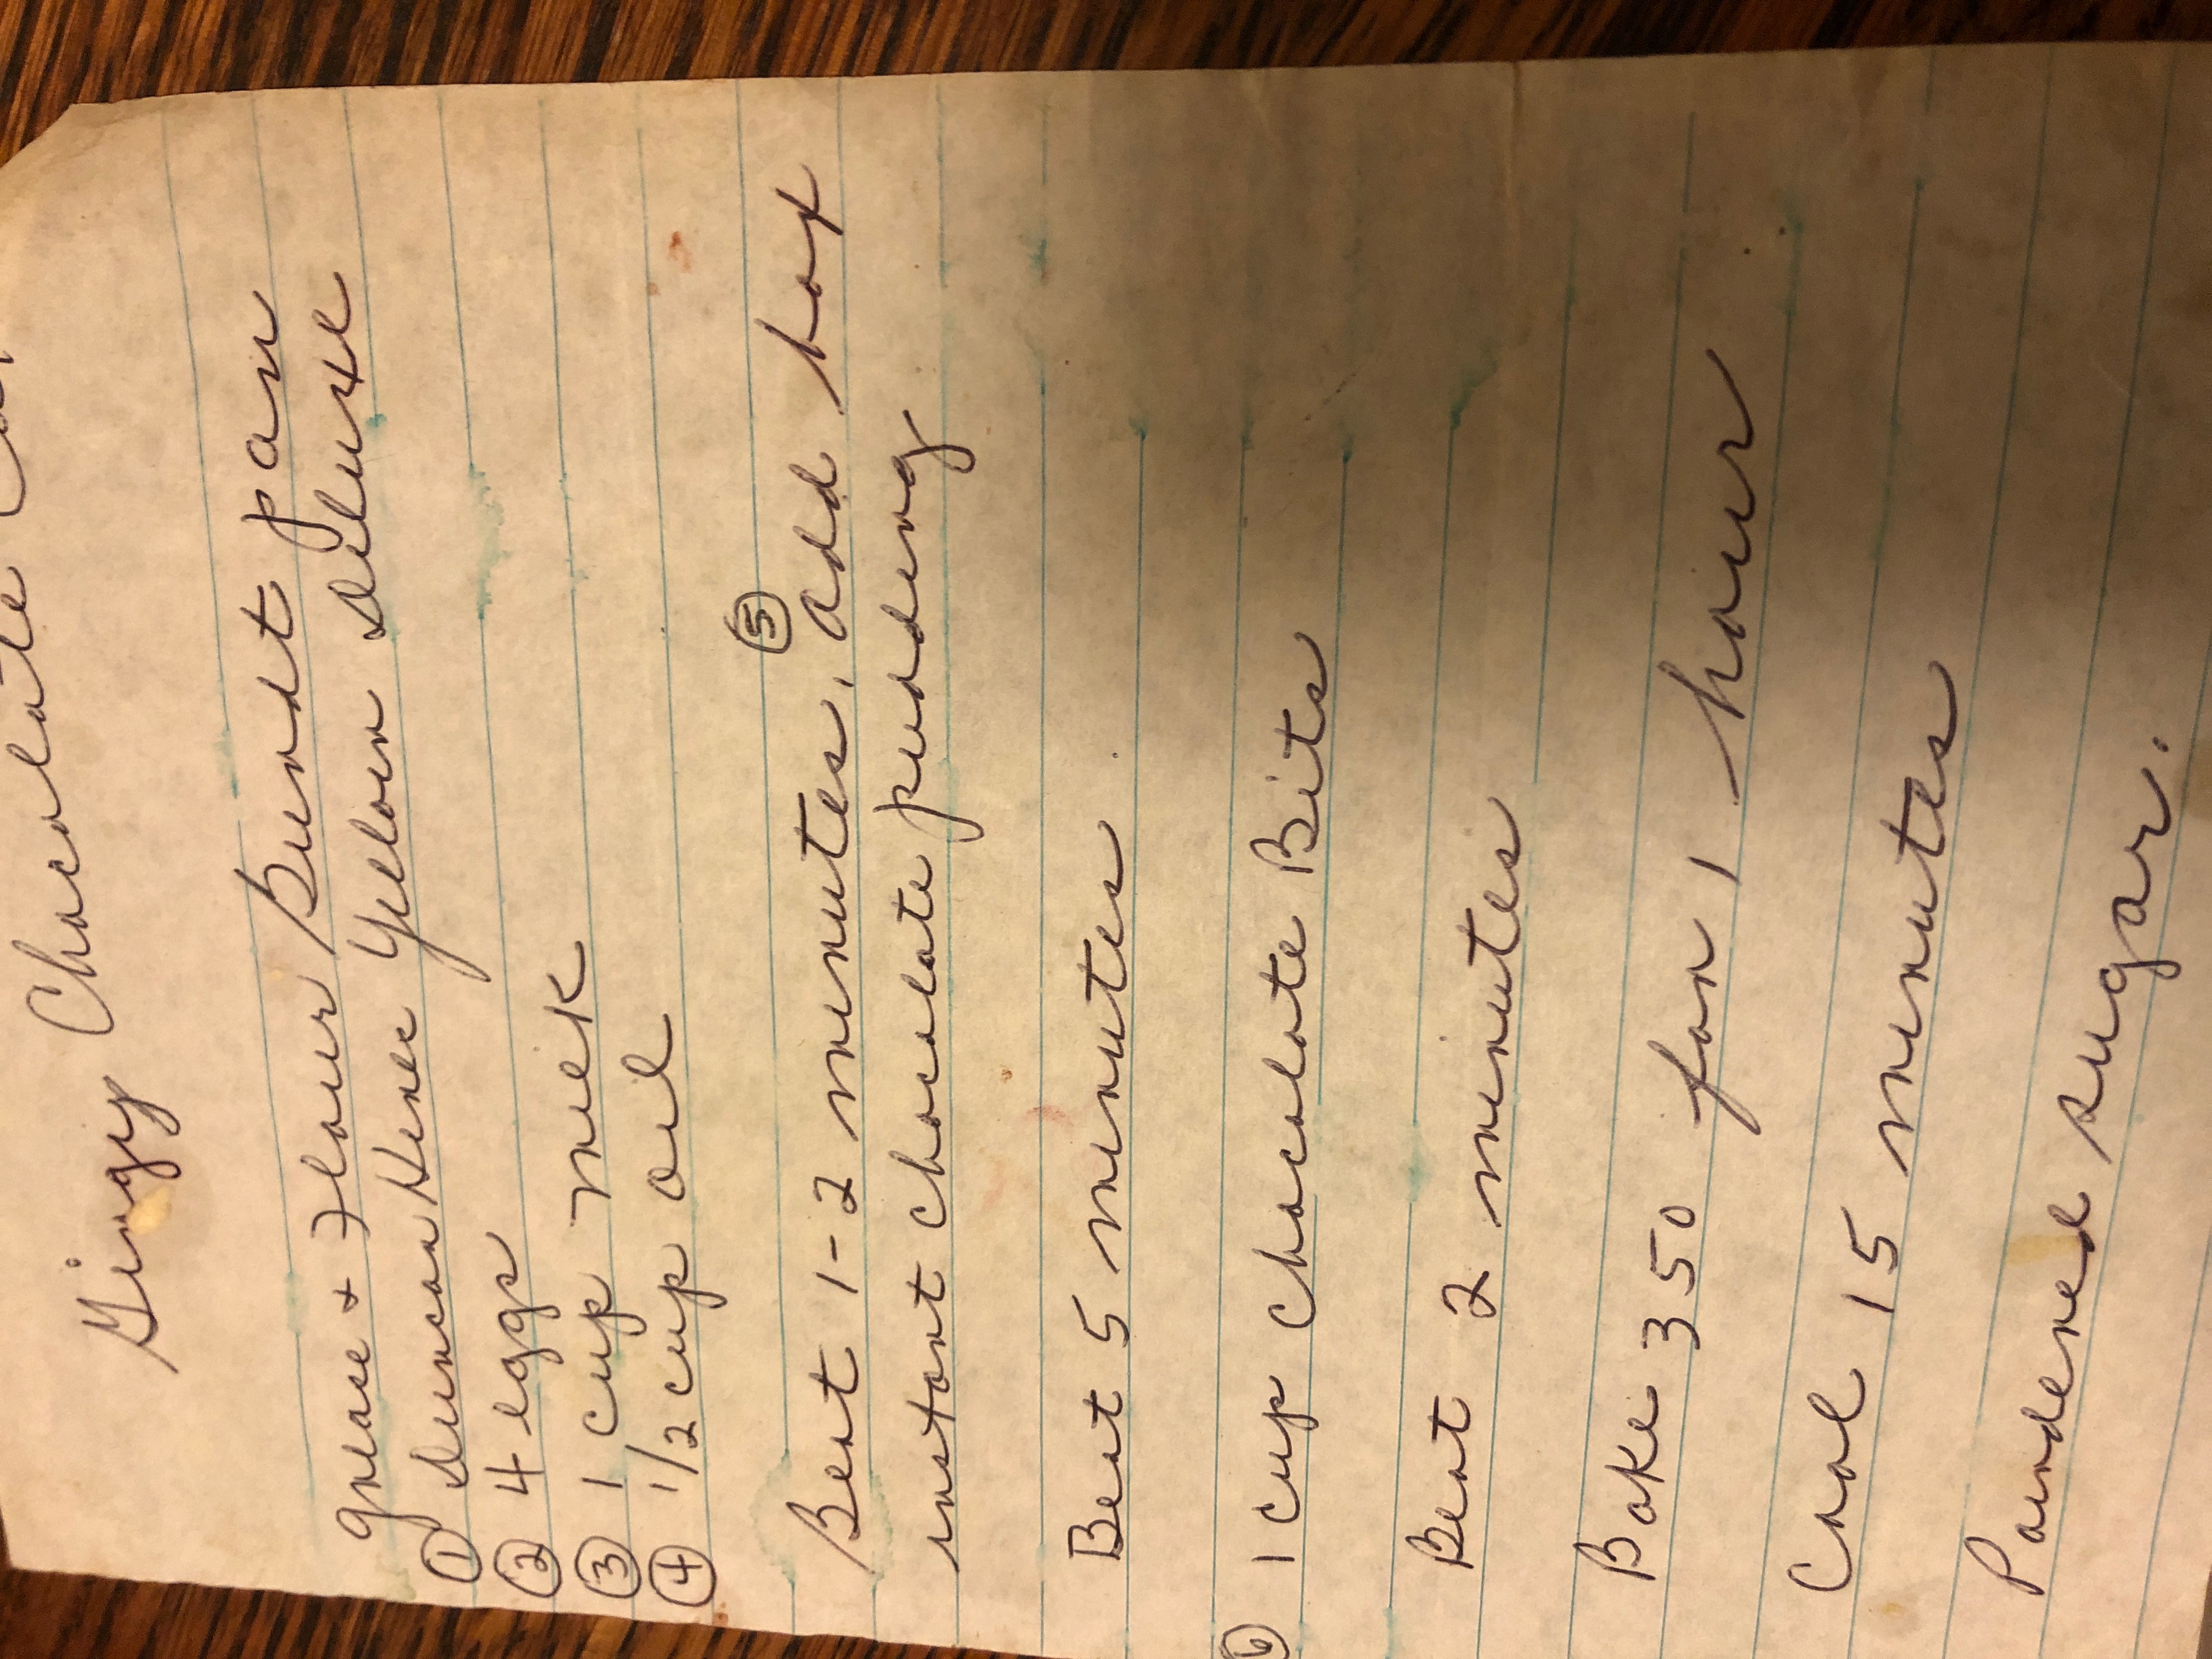 Gingy Chocolate
Grease & Flour Bundt pan
① Duncan Hines Yellow Deluxe
② 4 eggs
③ 1 cup milk
④ 1/2 cup oil
⑤
Beat 1-2 minutes. Add box
instant chocolate pudding
Beat 5 minutes.
⑥ 1 cup chocolate Bits
Beat 2 minutes
Bake 350 for 1 hour.
Cool 15 minutes
Powdered sugar.